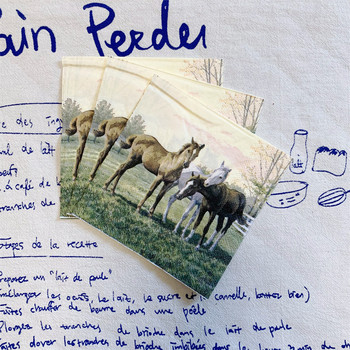 ain Perdu
e des ing
l de lait
lait
œufs
. à café de
tranches de
tapes de la recette
Préparez un "lait de poule"
(mélangez les oeufs, le lait, le sucre et l cannelle, battez bien)
Faites chauffer du beurre dans une poêle
Plongez les tranches de brioche dans le lait de poule
Faites dorer les tranches de brioche imbibées dans le